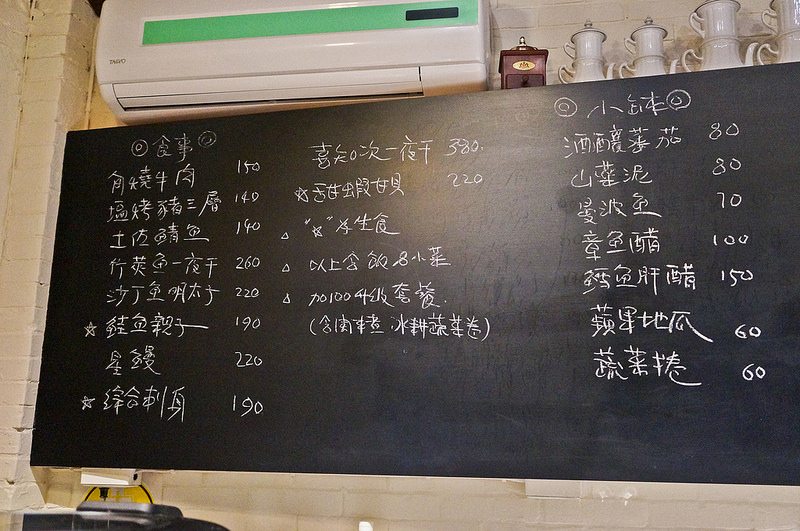 TAIYO
◎食事◎
角燒牛肉 150
塩烤豬三層 140
土佐鯖魚 140
竹筴魚一夜干 260
沙丁魚明太子 220
☆鮭魚親子 190
星鰻 220
☆綜合刺身 190
喜知次一夜干 380.
☆甜蝦甘貝 220
△ "☆"為生食
△ 以上含飯&小菜
△ 加100升級套餐.
(含關東煮 冰耕蔬菜卷)
◎小鉢◎
酒釀蕃茄 80
山藥泥 80
曼波魚 70
章魚醋 100
鱈魚肝醋 150
蘋果地瓜 60
蔬菜捲 60